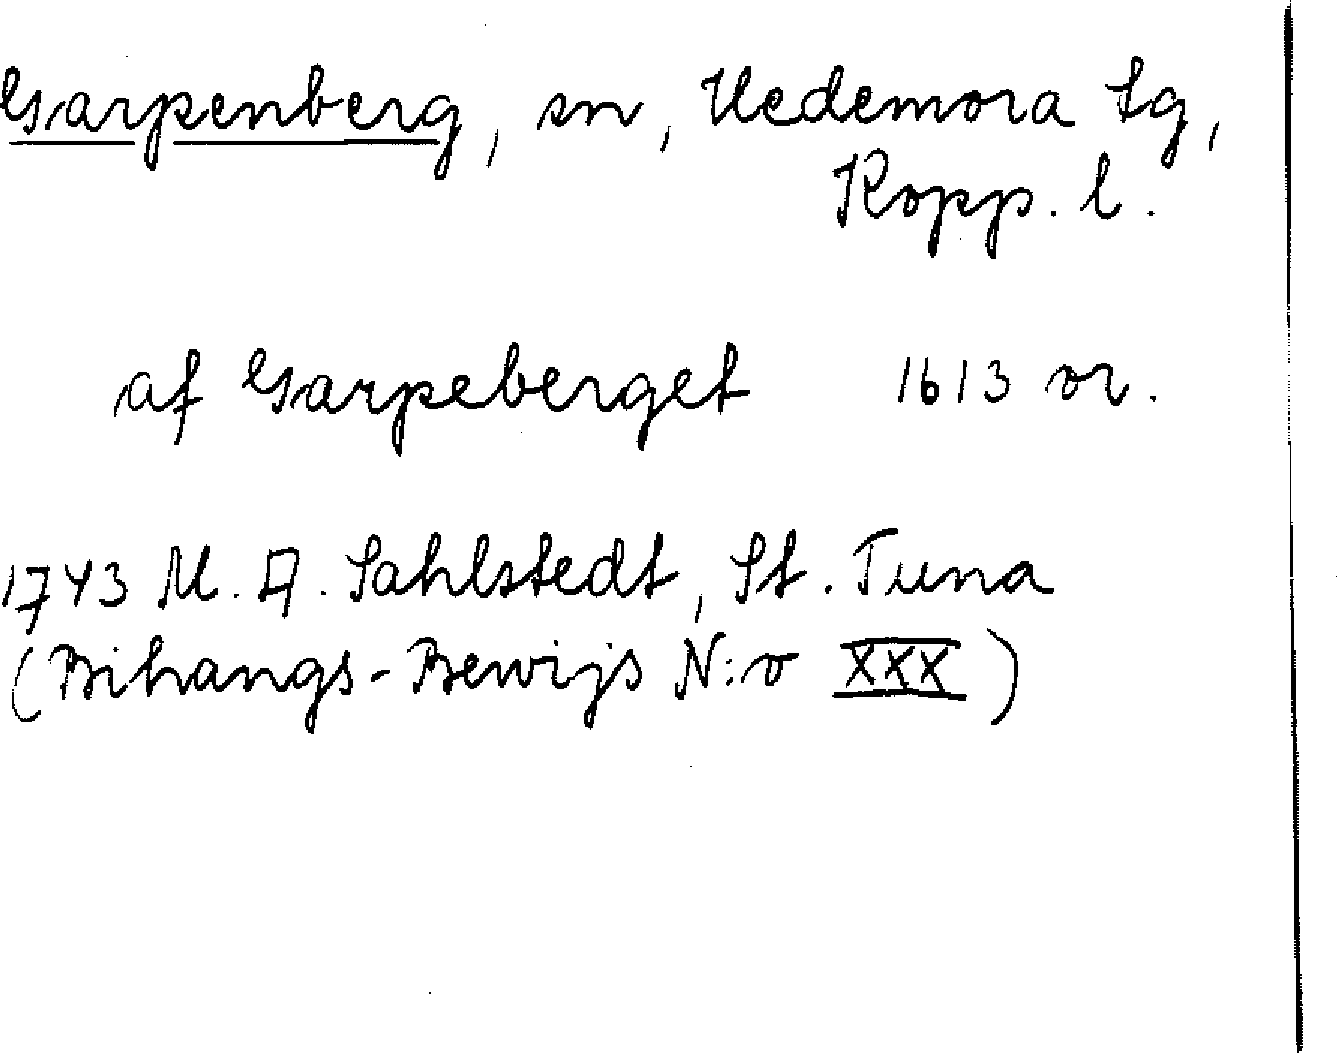 Garpenberg, sn, Hedemora tg,
Kopp. l.
af Garpeberget 1613 or.
1743 M. A. Sahlstedt, St. Tuna
(Bihangs-Bewijs N:o XXX)